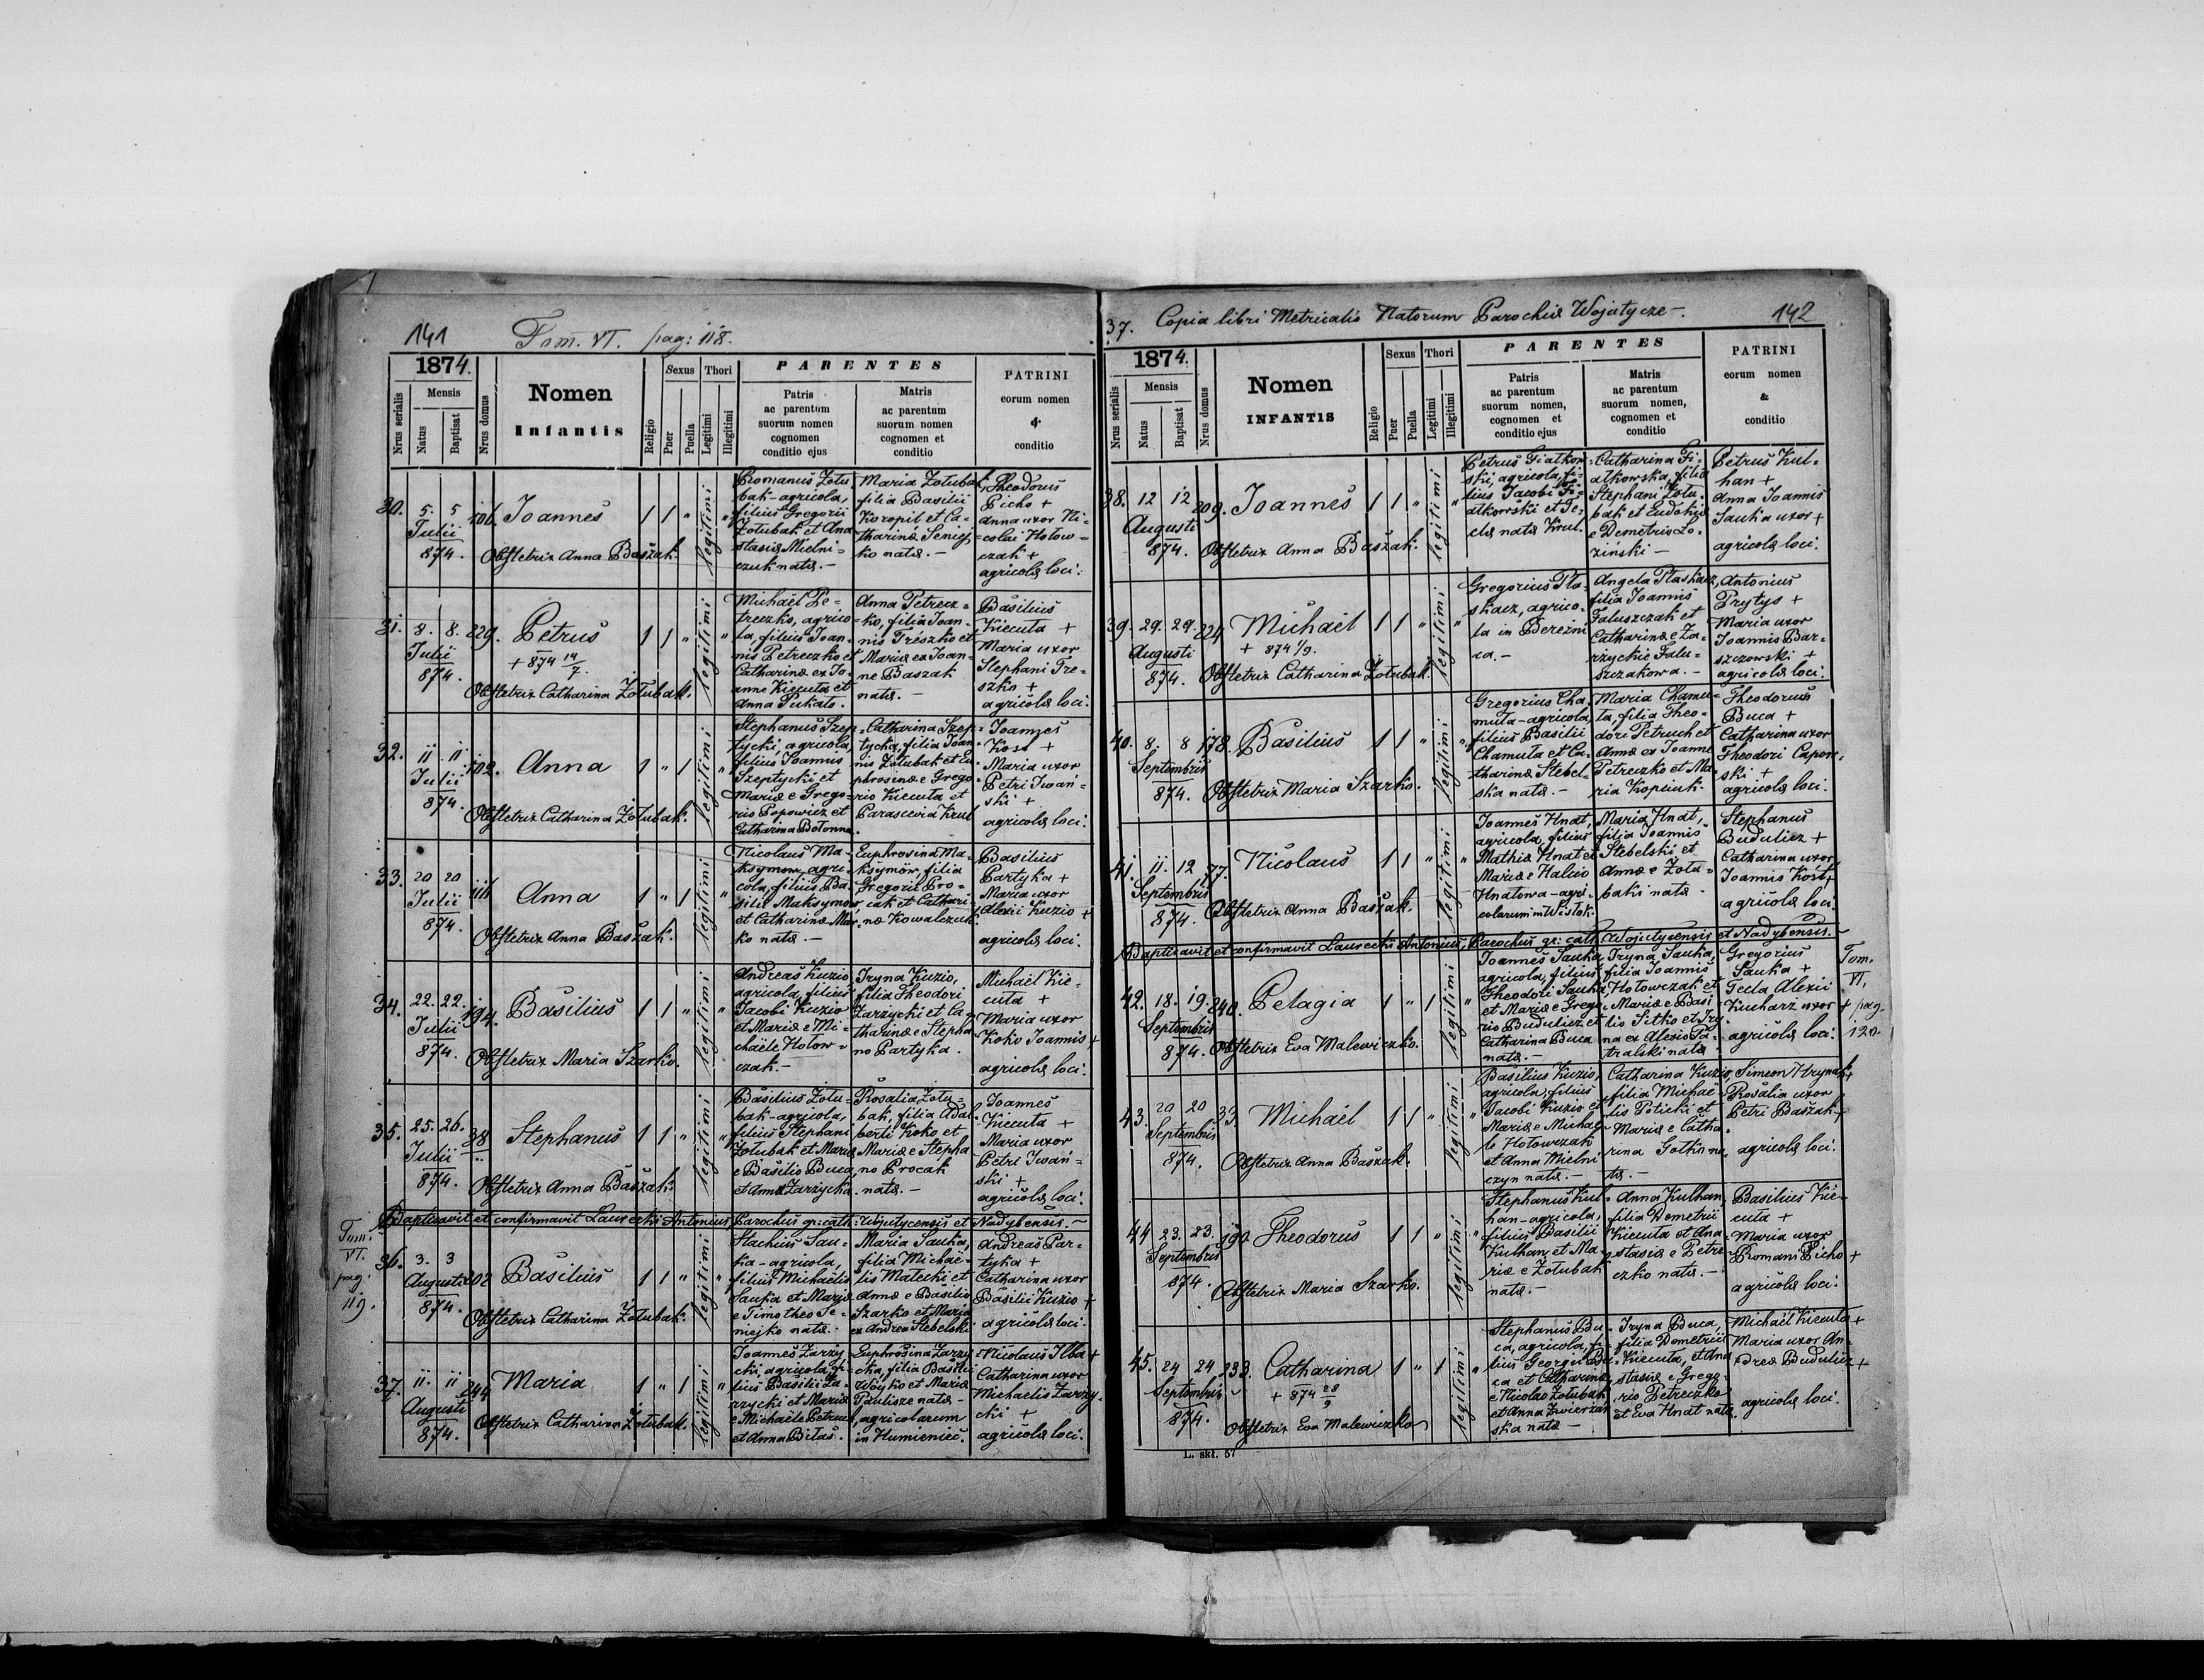 141 Tom. VI. pag: 118.
1874.
Nrus serialis
Mensis
Natus
Baptisat
Nrus domus
Nomen
Infantis
Religio
Sexus
Puer
Puella
Thori
Legitimi
Illegitimi
PARENTES
Patris
ac parentum
suorum nomen
cognomen
conditio ejus
Matris
ac parentum
suorum nomen
cognomen et
conditio
PATRINI
eorum nomen
&
conditio
30. 5. 5 106. Joannes 1 1 " legitimi "
Julii
874.
Obstetrix Anna Baszak.
Romanus Żołu
bak - agricola,
filius Gregorii
Żołubak et Ana
stasiæ Mielni-
czuk natæ.-
Maria Żołubak,
filia Basilii
Koropil et Ca-
tharinæ Seniej
ko natæ.-
Theodorus
Picho +
Anna uxor Ni-
colai Hołow-
czak +
agricolæ loci.
31. 8. 8. 229. Petrus 1 1 " legitimi "
Julii
874.
+ 874 14/7.
Obstetrix Catharina Żołubak.
Michaël Pe-
treczko, agrico-
la, filius Joan-
nis Petreczko et
Catharinæ ex Jo-
anne Kiecuta et
Anna Pukało.
Anna Petrecz-
ko, filia Joan-
nis Treszko et
Mariæ ex Joan-
ne Baszak
natæ.-
Basilius
Kiecuta +
Maria uxor
Stephani Tre-
szko +
agricolæ loci.
32. 11. 11. 102. Anna 1 " 1 legitimi "
Julii
874.
Obstetrix Catharina Żołubak.
Stephanus Szep-
tycki, agricola,
filius Joannis
Szeptycki et
Mariæ e Grego-
rio Popowicz et
Catharina Bołonna.
Catharina Szep-
tycka, filia Joan-
nis Żołubak et Eu-
phrosinæ e Grego-
rio Kiecuta et
Parascevia Krul
Joannes
Kost +
Maria uxor
Petri Iwań-
ski +
agricolæ loci.
33. 20 20 111 Anna 1 " 1 legitimi "
Julii
874.
Obstetrix Anna Baszak.
Nicolaus Ma-
ksymow, agri-
cola, filius Ba-
silii Maksymow
et Catharinæ Mar-
ko natæ.-
Euphrosina Ma-
ksymów, filia
Gregorii Pro-
cak et Cathari-
næ Kowalczuk
Basilius
Partyka +
Maria uxor
Alexii Kuzio +
agricolæ loci.
34. 22. 22. 194. Basilius 1 1 " legitimi "
Julii
874.
Obstetrix Maria Szarko.
Andreas Kuzio
agricola, filius
Jacobi Kuzio
et Mariæ e Mi-
chaële Hołow-
czak.-
Iryna Kuzio,
filia Theodori
Zarzycki et Ca-
tharinæ e Stepha
no Partyka.
Michaël Kie-
cuta +
Maria uxor
Koko Joannis +
agricolæ loci.
35. 25. 26. 38 Stephanus 1 1 " legitimi "
Julii
874.
Obstetrix Anna Baszak.
Basilius Żołu-
bak - agricola,
filius Stephani
Żołubak et Mariæ
e Basilio Buca
et Anna Zarzycka.
Rosalia Żołu-
bak, filia Adal-
berti Koko et
Mariæ e Stepha
no Procak
natæ.-
Joannes
Kiecuta +
Maria uxor
Petri Iwań-
ski +
agricolæ loci.
Baptisavit et confirmavit Laurecki Antonius, Parochus gr: cath: Wojutycensis et Nadybensis.-
Tom.
VI.
pag.
119.
36. 3. 3 202 Basilius 1 1 " legitimi "
Augusti
874.
Obstetrix Catharina Żołubak.
Stachius Sau-
ka - agricola,
filius Michaëlis
Sauka et Mariæ
e Timotheo Se-
niejko natæ.-
Maria Sauka,
filia Michaë-
lis Małecki et
Annæ e Basilio
Szarko et Maria
ex Andrea Stebelski
Andreas Par-
tyka +
Catharina uxor
Basilii Kuzio +
agricolæ loci.
37. 11. 11. 244 Maria 1 " 1 legitimi "
Augusti
874.
Obstetrix Catharina Żołubak.
Joannes Zarzy
cki, agricola, fi-
lius Basilii Za-
rzycki et Mariæ
e Michaële Petruch,
et Anna Biłas.
Euphrosina Zarzy
cka, filia Basilii
Woyko et Mariæ
Paulisze natæ -
agricolarum
in Humieniec.
Nicolaus Ilba +
Catharina uxor
Michaëlis Zarzy-
cki +
agricolæ loci.
37. Copia libri Metricalis Natorum Parochiæ Wojutycze-. 142
1874.
Nrus serialis
Mensis
Natus
Baptisat
Nrus domus
Nomen
INFANTIS
Religio
Sexus
Puer
Puella
Thori
Legitimi
Illegitimi
PARENTES
Patris
ac parentum
suorum nomen,
cognomen et
conditio ejus
Matris
ac parentum
suorum nomen,
cognomen et
conditio
PATRINI
eorum nomen
&
conditio
38. 12 12 209. Joannes 1 1 " legitimi "
Augusti
874.
Obstetrix Anna Baszak.
Petrus Fiatkow-
ski, agricola, fi-
lius Jacobi Fi-
atkowski et Te-
clæ natæ Krul.
Catharina Fi-
atkowska, filia
Stephani Żołu-
bak et Eudokiæ
e Demetrio Ło-
ziński -
Petrus Kul-
han +
Anna Joannis
Sauka uxor +
agricolæ loci.
39. 29. 29. 224 Michaël 1 1 " legitimi "
Augusti
874.
+ 874 1/9.
Obstetrix Catharina Żołubak.
Gregorius Pła-
skacz, agrico-
la in Bereźni
ca.-
Angela Płaskacz,
filia Joannis
Faluszczak et
Catharinæ e Za-
rzyckie Falu-
szczakowa.-
Antonius
Prytys +
Maria uxor
Joannis Bar-
szczowski +
agricolæ loci.
40. 8. 8 178. Basilius 1 1 " legitimi "
Septembris
874.
Obstetrix Maria Szarko.
Gregorius Cha-
muta - agricola,
filius Basilii
Chamuta et Ca-
tharinæ Stebel-
ska natæ.-
Maria Chamu-
ta, filia Theo-
dori Petruch et
Annæ ex Joanne
Petreczko et Ma
ria Kopciuk.
Theodorus
Buca +
Catharina uxor
Theodori Capow-
ski +
agricolæ loci.
41. 11. 12 77. Nicolaus 1 1 " legitimi "
Septembris
874.
Obstetrix Anna Baszak.
Joannes Hnat,
agricola, filius
Mathiæ Hnat et
Mariæ e Halicio
Hnatowa - agri-
colarum in Wistok.
Maria Hnat,
filia Joannis
Stebelski et
Annæ e Żołu-
baki natæ.
Stephanus
Buduliez +
Catharina uxor
Joannis Kost +
agricolæ loci.
Baptisavit et confirmavit Laurecki Antonius, Parochus gr: cath. Wojutycensis et Nadybensis.-
Tom.
VI.
pag.
120.
42. 18. 19. 240. Pelagia 1 " 1 legitimi "
Septembris
874.
Obstetrix Eva Malewiczko.
Joannes Sauka,
agricola, filius
Theodori Sauka
et Mariæ e Grego-
rio Buduliez et
Catharina Buca
natæ.-
Iryna Sauka,
filia Joannis
Hołowczak et
Mariæ e Basi
lio Sitko et Iry-
na ex Alexio Pa-
tralski natæ.
Gregorius
Sauka +
Tecla Alexii
Kucharz uxor +
agricolæ loci.
43. 20 20 33. Michaël 1 1 " legitimi "
Septembris
874.
Obstetrix Anna Baszak.
Basilius Kuzio,
agricola, filius
Jacobi Kuzio et
Mariæ e Michaë-
le Hołowczak
et Anna Mielni
czyn natæ.-
Catharina Kuzio,
filia Michaë-
lis Poticki et
Mariæ e Catha-
rina Gotko na-
tæ.-
Simeon Hrynak +
Rosalia uxor
Petri Baszak +
agricolæ loci.
44 23. 23. 190. Theodorus 1 1 " legitimi "
Septembris
874.
Obstetrix Maria Szarko.
Stephanus Kul-
han - agricola,
filius Basilii
Kulhan et Ma-
riæ e Żołubak
natæ.-
Anna Kulhan,
filia Demetrii
Kiecuta et Ana
stasiæ e Petre-
czko natæ.-
Basilius Kie-
cuta +
Maria uxor
Romani Picho +
agricolæ loci.
45. 24 24 233. Catharina 1 " 1 legitimi "
Septembris
874.
+ 874 28/9
Obstetrix Eva Malewiczko
Stephanus Bu-
ca, agricola, fi-
lius Georgii Bu-
ca et Catharinæ
e Nicolao Żołubak
et Anna Zwierzan
ska natæ -
Iryna Buca,
filia Demetrii
Kiecuta, et Ana
stasiæ e Grego-
rio Petreczko
et Eva Hnat natæ.
Michaël Kiecuta +
Maria uxor An-
dreæ Buduliez +
agricolæ loci.
L. skł. 57